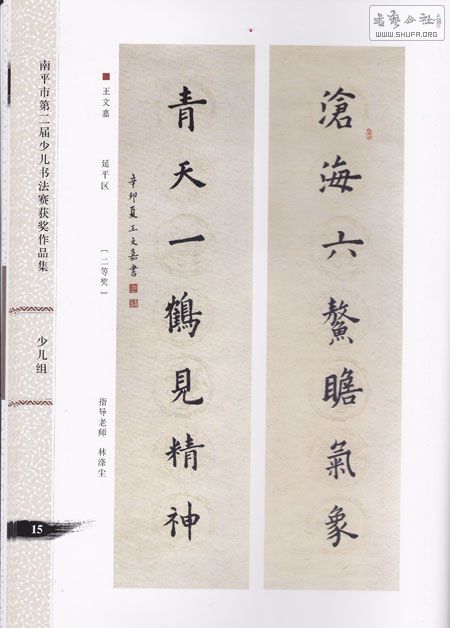 書藝公社
WWW.SHUFA.ORG
滄海六鰲瞻氣象
青天一鶴見精神
辛卯夏王文嘉書
■王文嘉 延平区 （二等奖） 指导老师 林涤尘
南平市第二届少儿书法赛获奖作品集
少儿组
15